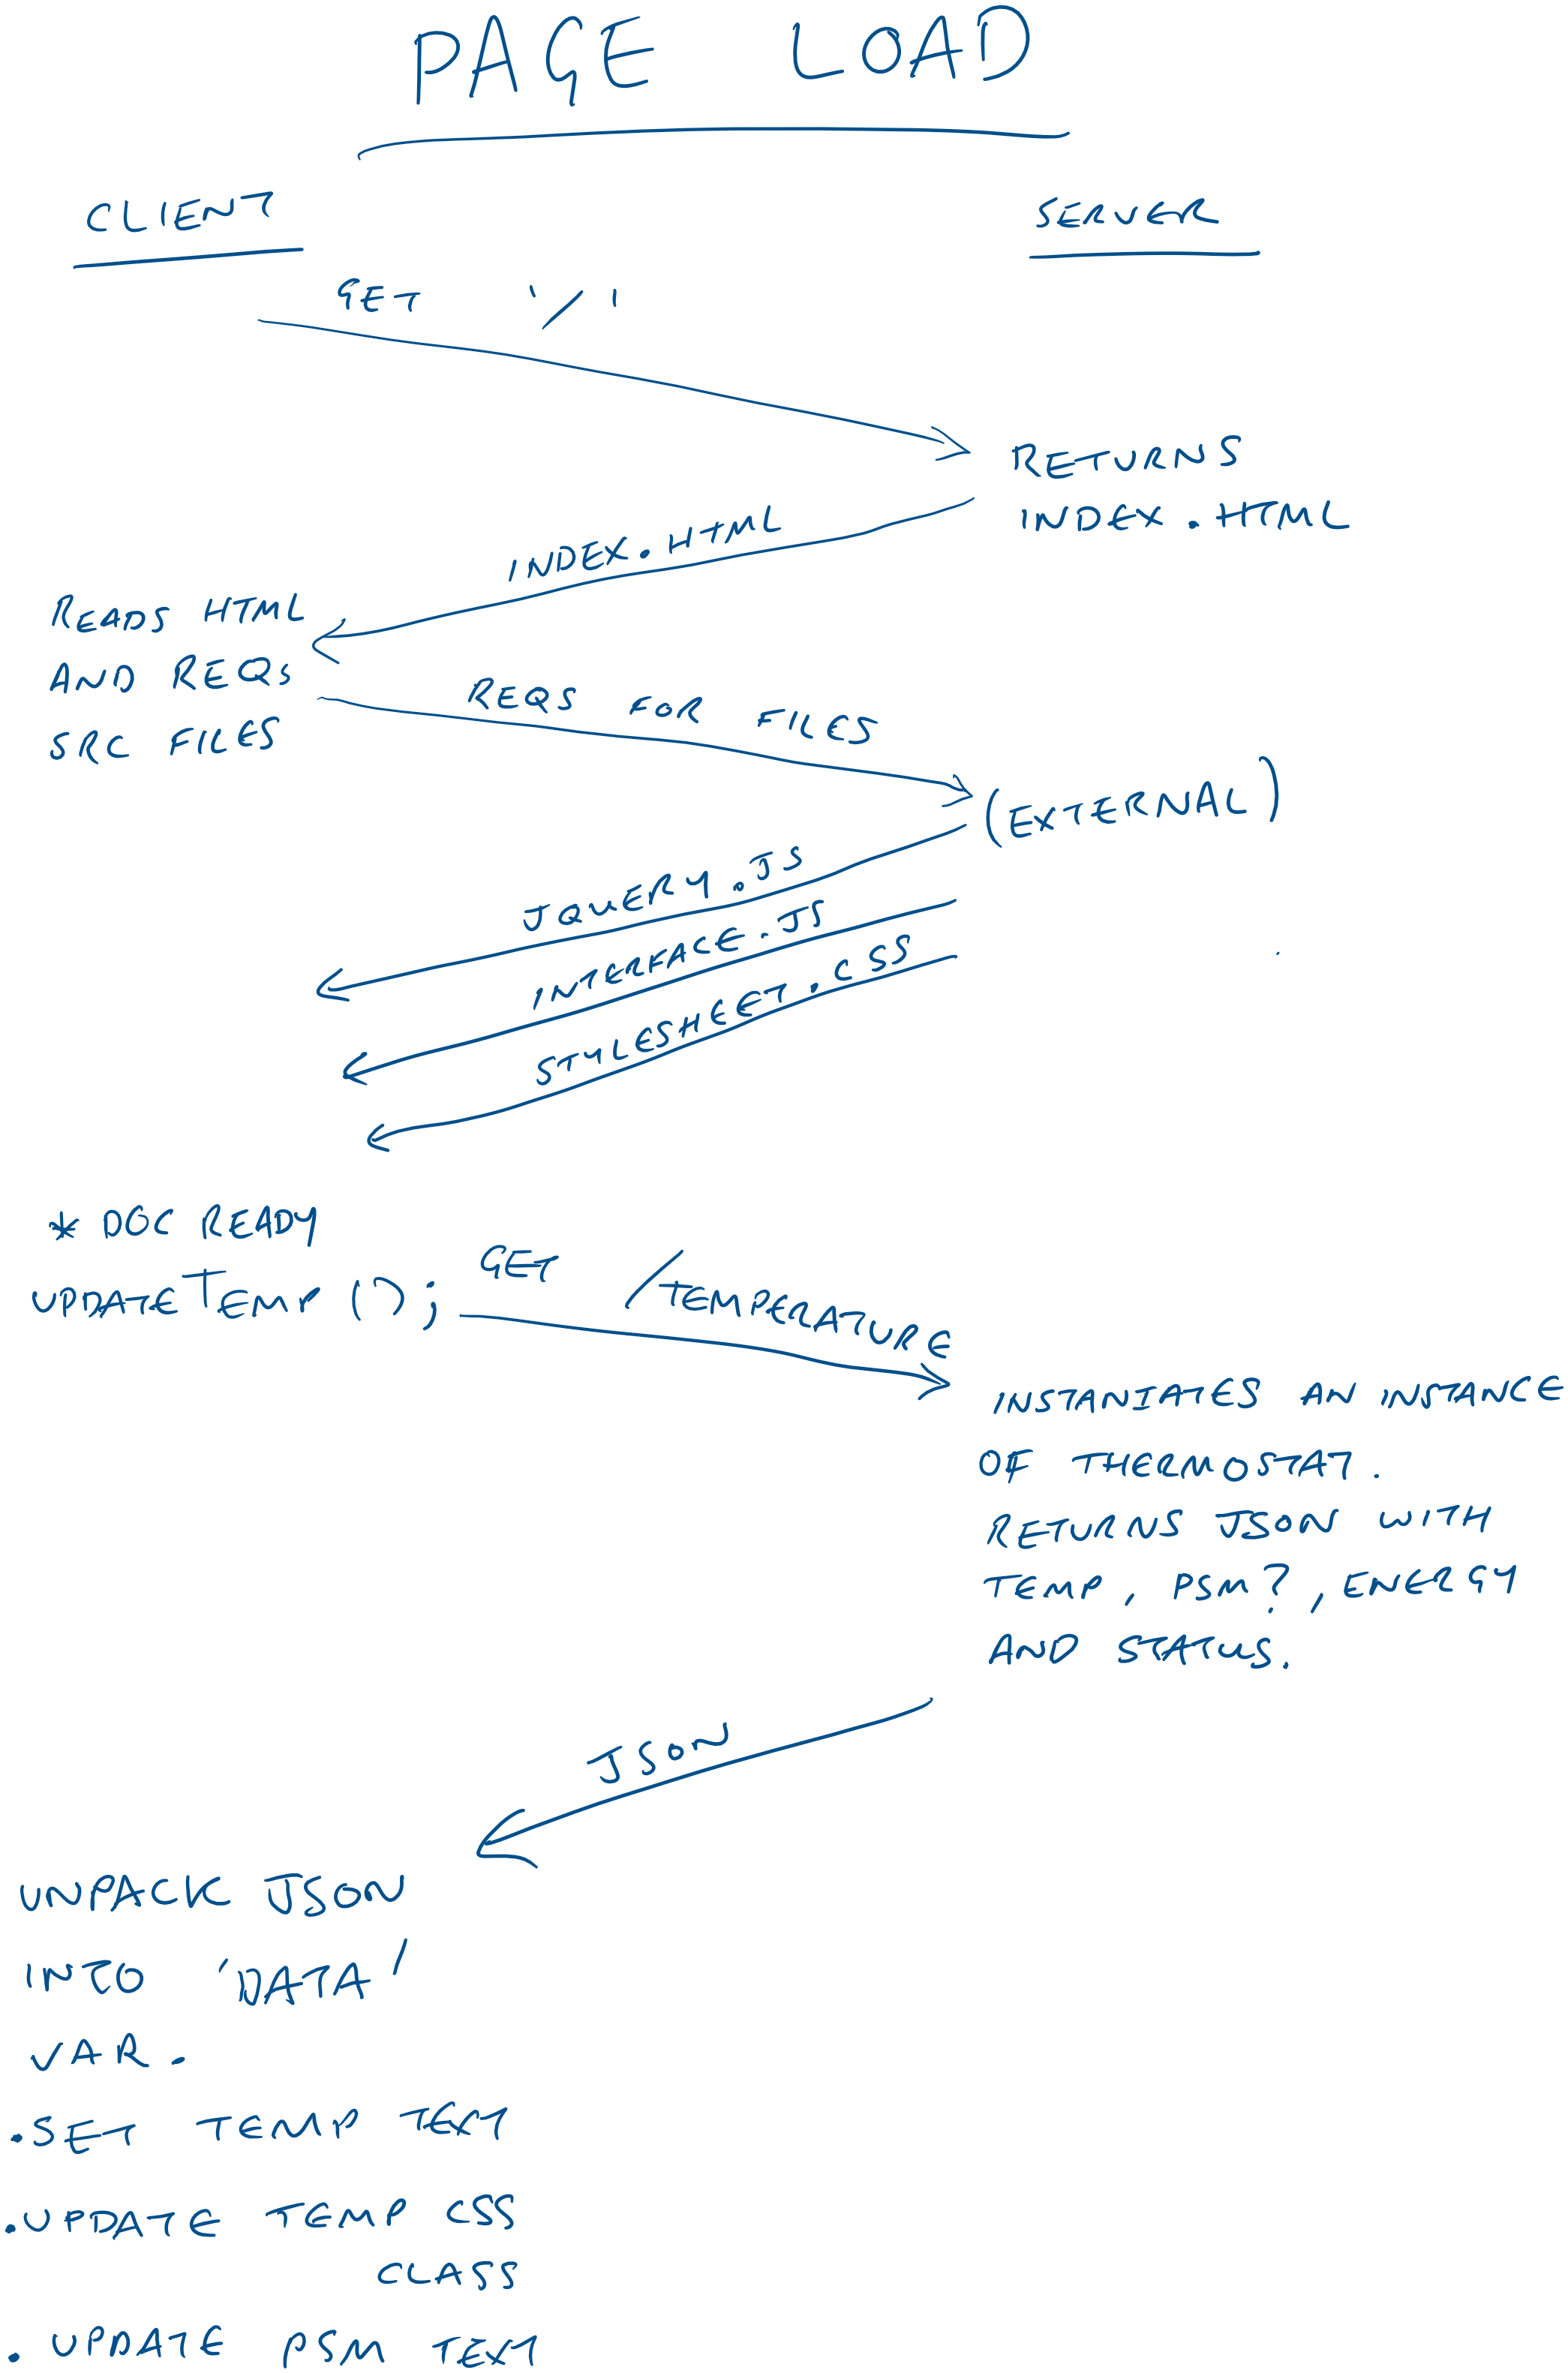 PAGE LOAD
CLIENT
SERVER
GET '/'
RETURNS
INDEX.HTML
INDEX.HTML
READS HTML
AND REQS
SRC FILES
REQS FOR FILES
(EXTERNAL)
JQUERY.JS
INTERFACE.JS
STYLESHEET.CSS
* DOC READY
UPDATETEMP();
GET /TEMPERATURE
INSTANIATES AN INSTANCE
OF THERMOSTAT.
RETURNS JSON WITH
TEMP, PSM?, ENERGY
AND STATUS.
JSON
UNPACK JSON
INTO 'DATA'
VAR.
.SET TEMP TEXT
.UPDATE TEMP CSS
CLASS
. UPDATE PSM TEXT